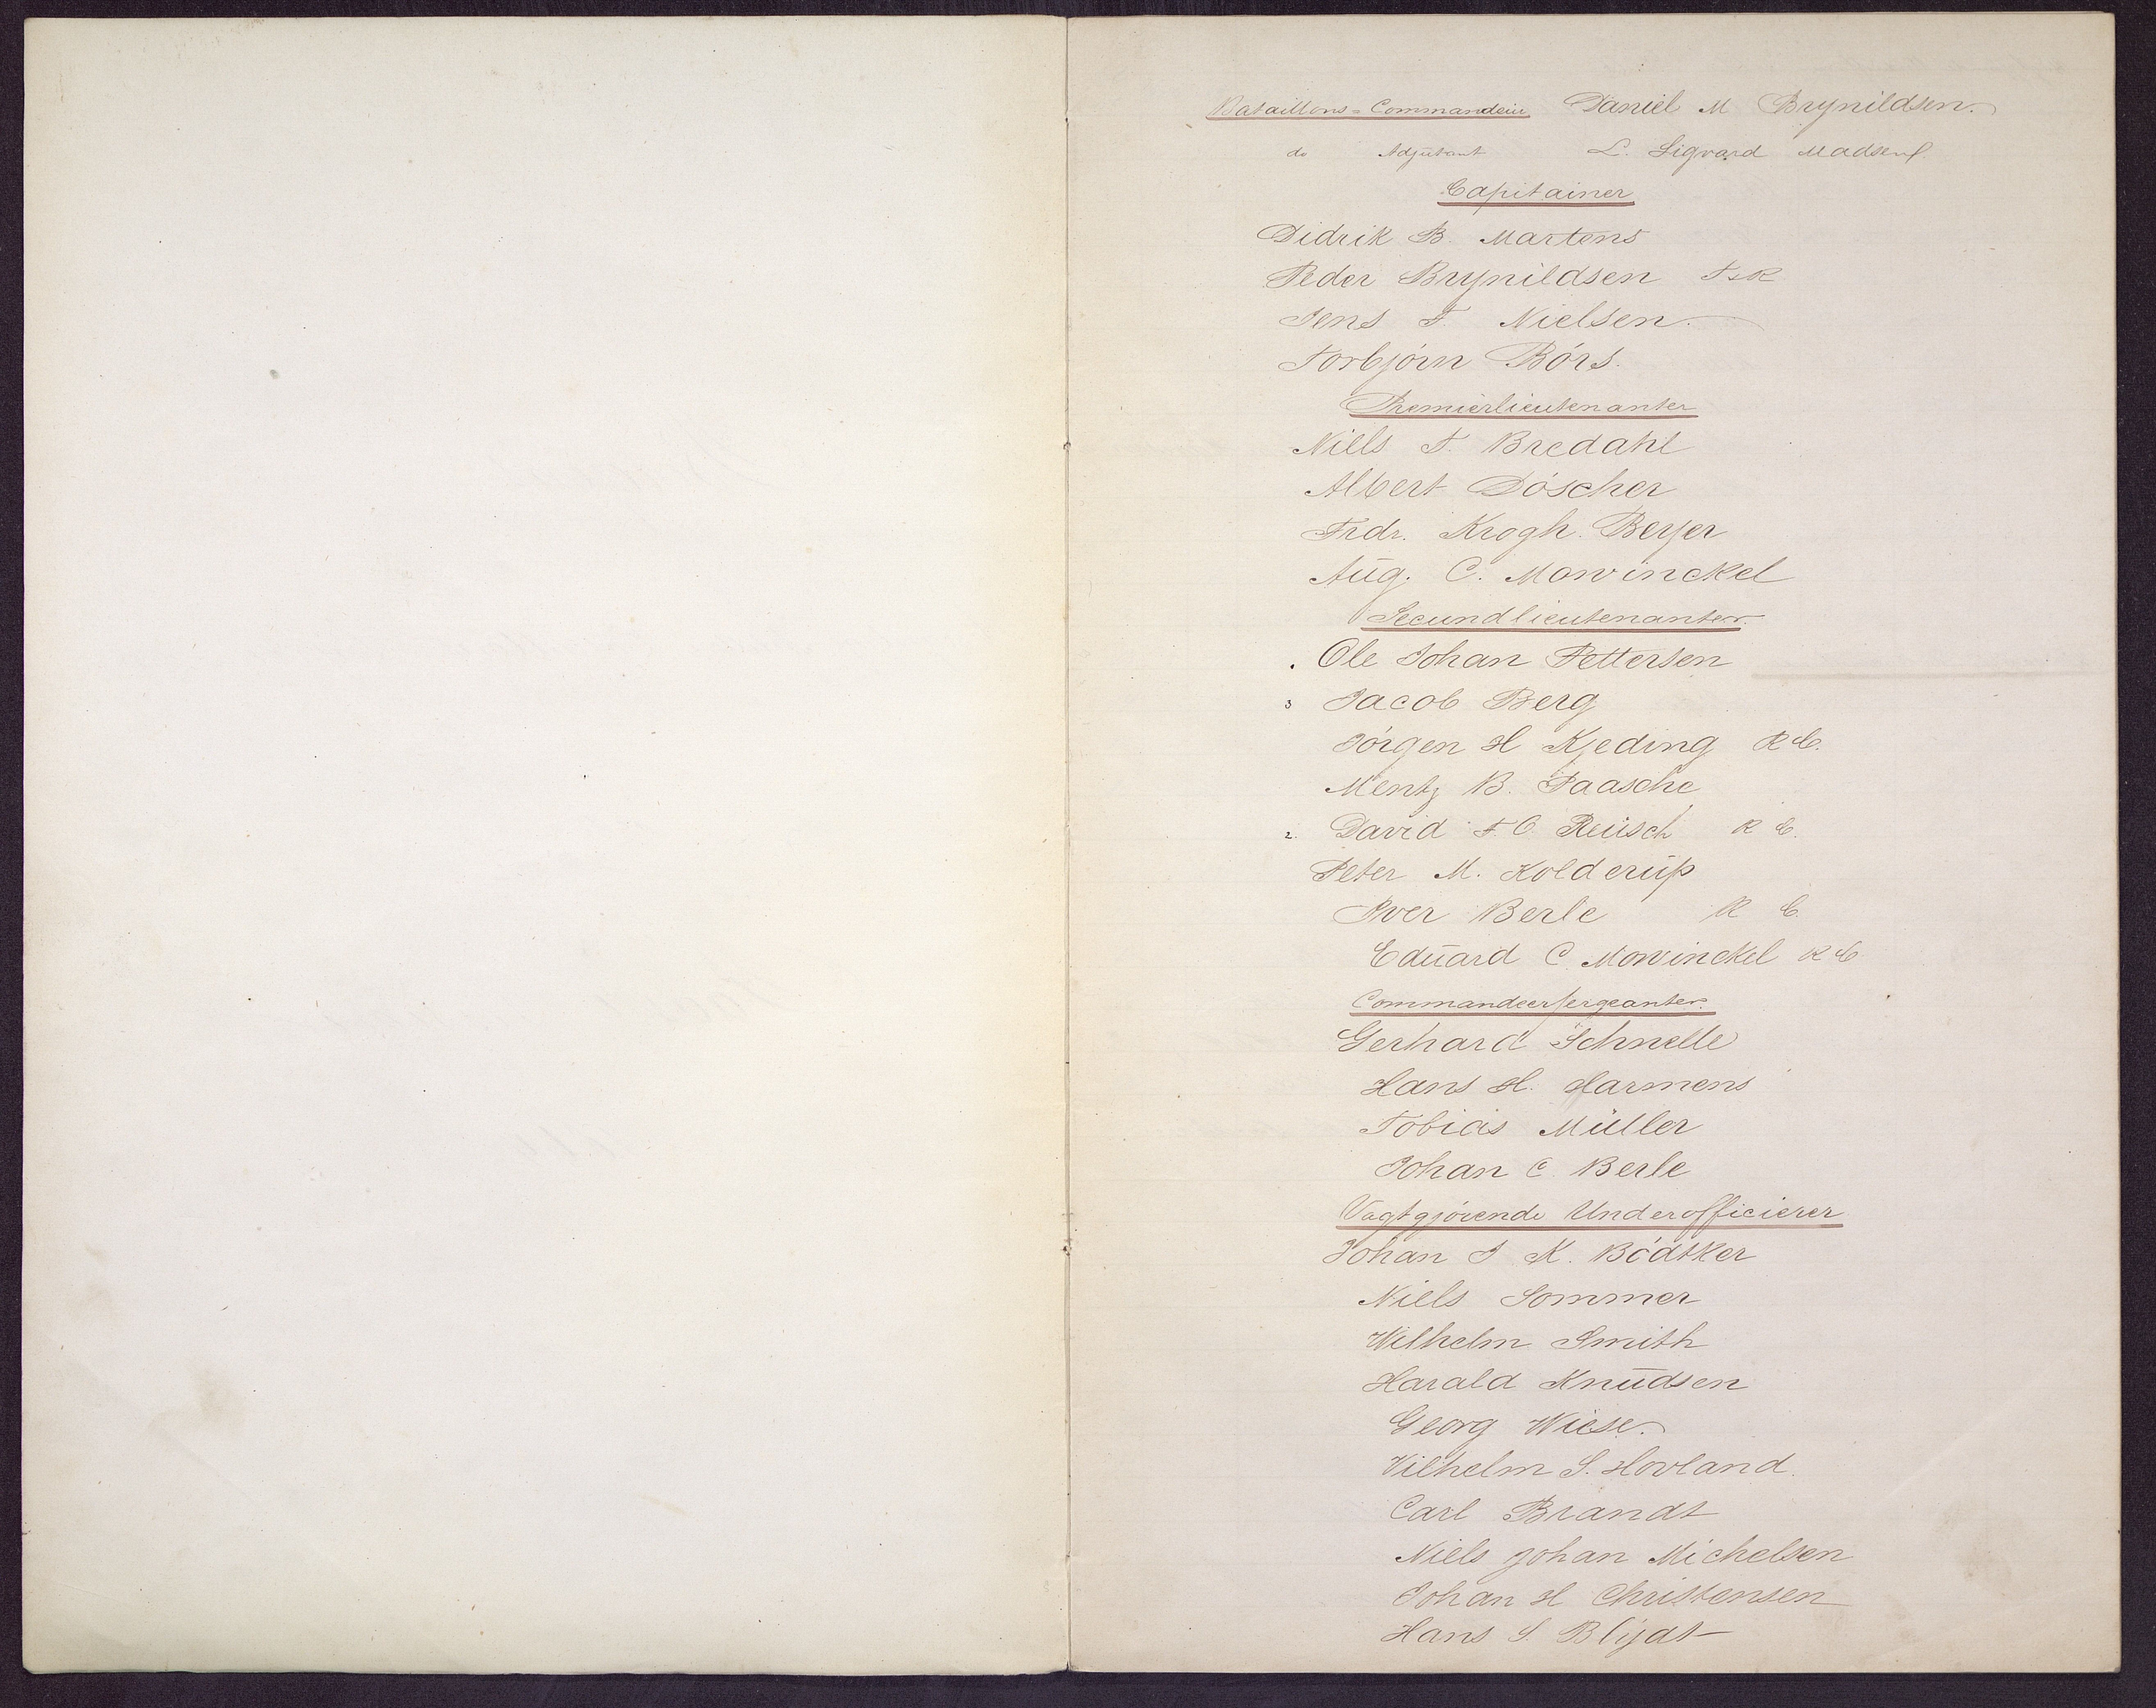 Bataillons=Commandeur Daniel M Brynildsen.
do Adjutant L. Sigvard Madsen
Capitainer
Didrik B. Martens
Peder Brynildsen
Jens F. Nielsen.
Torbjörn Börs.
Premierlieutenanter
Niels F. Bredahl
Albert Döscher
Frdr. Krogh. Beyer
Aug. C. Mowinckel
Secundlieutenanter.
Ole Johan Pettersen
3 Jacob Berg
Jörgen H Kjeding R C.
Mentz B. Paasche
2. David F. C. Reusch R C.
Peter M. Kolderup
Iver Berle R C.
Eduard C Mowinckel R C
Commandeersergeanter.
Gerhard Schnelle
Hans H. Harmens
Tobias Müller
Johan C. Berle
Vagtgjörende Underofficierer
Johan J K. Bödtker
Niels Sommer
Wilhelm Smith
Harald Knudsen
Georg Wiese.
Vilhelm S. Hovland.
Carl Brandt
Niels Johan Michelsen
Johan H Christensen
Hans S. Blydt